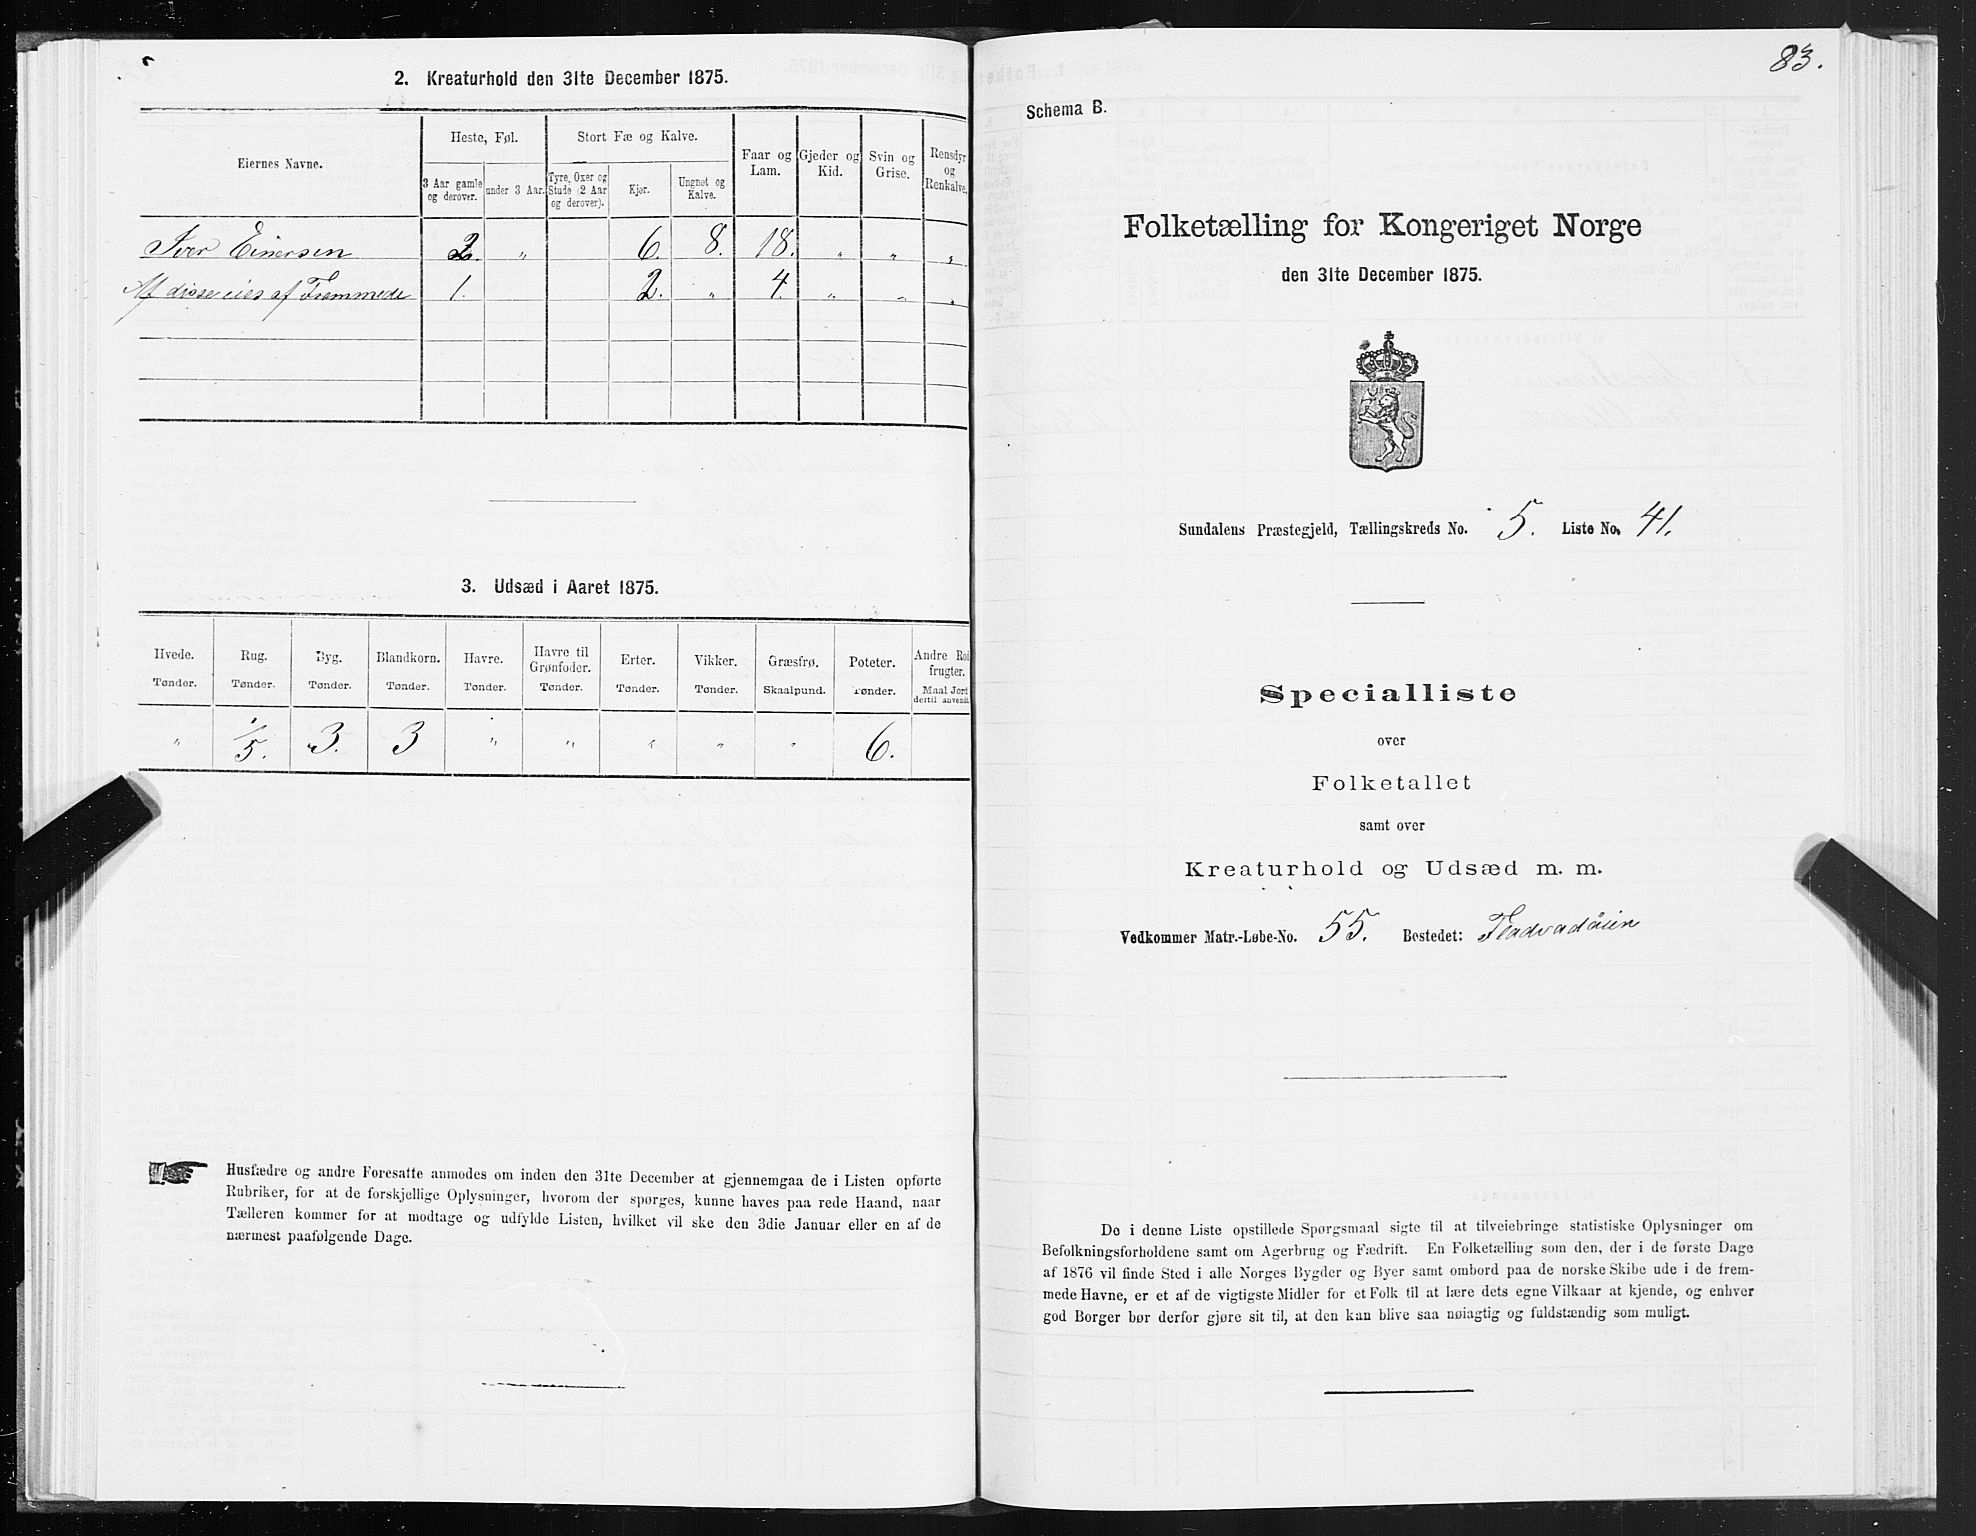 2. Kreaturhold den 31te December 1875.
Eiernes Navne.
Heste, Føl.
Stort Fæ og Kalve.
Faar og Lam.
Gjeder og Kid.
Svin og Grise.
Rensdyr og Renkalve.
3 Aar gamle og derover.
under 3 Aar.
Tyre, Oxer og Stude (2 Aar og derover).
Kjør.
Ungnøt og Kalve.
Iver Einersen 2. " 6. 8. 18. " " "
Af disse eies af Fremmede 1. 2. " 4. " " "
3. Udsæd i Aaret 1875.
Hvede. Rug. Byg. Blandkorn. Havre. Havre til Grønfoder. Erter. Vikker. Græsfrø. Poteter. Andre Rodfrugter.
Tønder. Tønder. Tønder. Tønder. Tønder. Tønder. Tønder. Tønder. Skaalpund. Tønder. Maal Jord dertil anvendt
" 1/5. 3. 3 " " " " " 6.
Husfædre og andre Foresatte anmodes om inden den 31te December at gjennemgaa de i Listen opførte
Rubriker, for at de forskjellige Oplysninger, hvorom der spørges, kunne haves paa rede Haand, naar
Tælleren kommer for at modtage og udfylde Listen, hvilket vil ske den 3die Januar eller en af de
nærmest paafølgende Dage.
83.
Schema B.
Folketælling for Kongeriget Norge
den 31te December 1875.
Sundalens Præstegjeld, Tællingskreds No. 5. Liste No. 41.
Specialliste
over
Folketallet
samt over
Kreaturhold og Udsæd m. m.
Vedkommer Matr.-Løbe-No. 55. Bostedet: Fladvadöien
De i denne Liste opstillede Spørgsmaal sigte til at tilveiebringe statistiske Oplysninger om
Befolkningsforholdene samt om Agerbrug og Fædrift. En Folketælling som den, der i de første Dage
af 1876 vil finde Sted i alle Norges Bygder og Byer samt ombord paa de norske Skibe ude i de frem-
mede Havne, er et af de vigtigste Midler for et Folk til at lære dets egne Vilkaar at kjende, og enhver
god Borger bør derfor gjøre sit til, at den kan blive saa nøiagtig og fuldstændig som muligt.